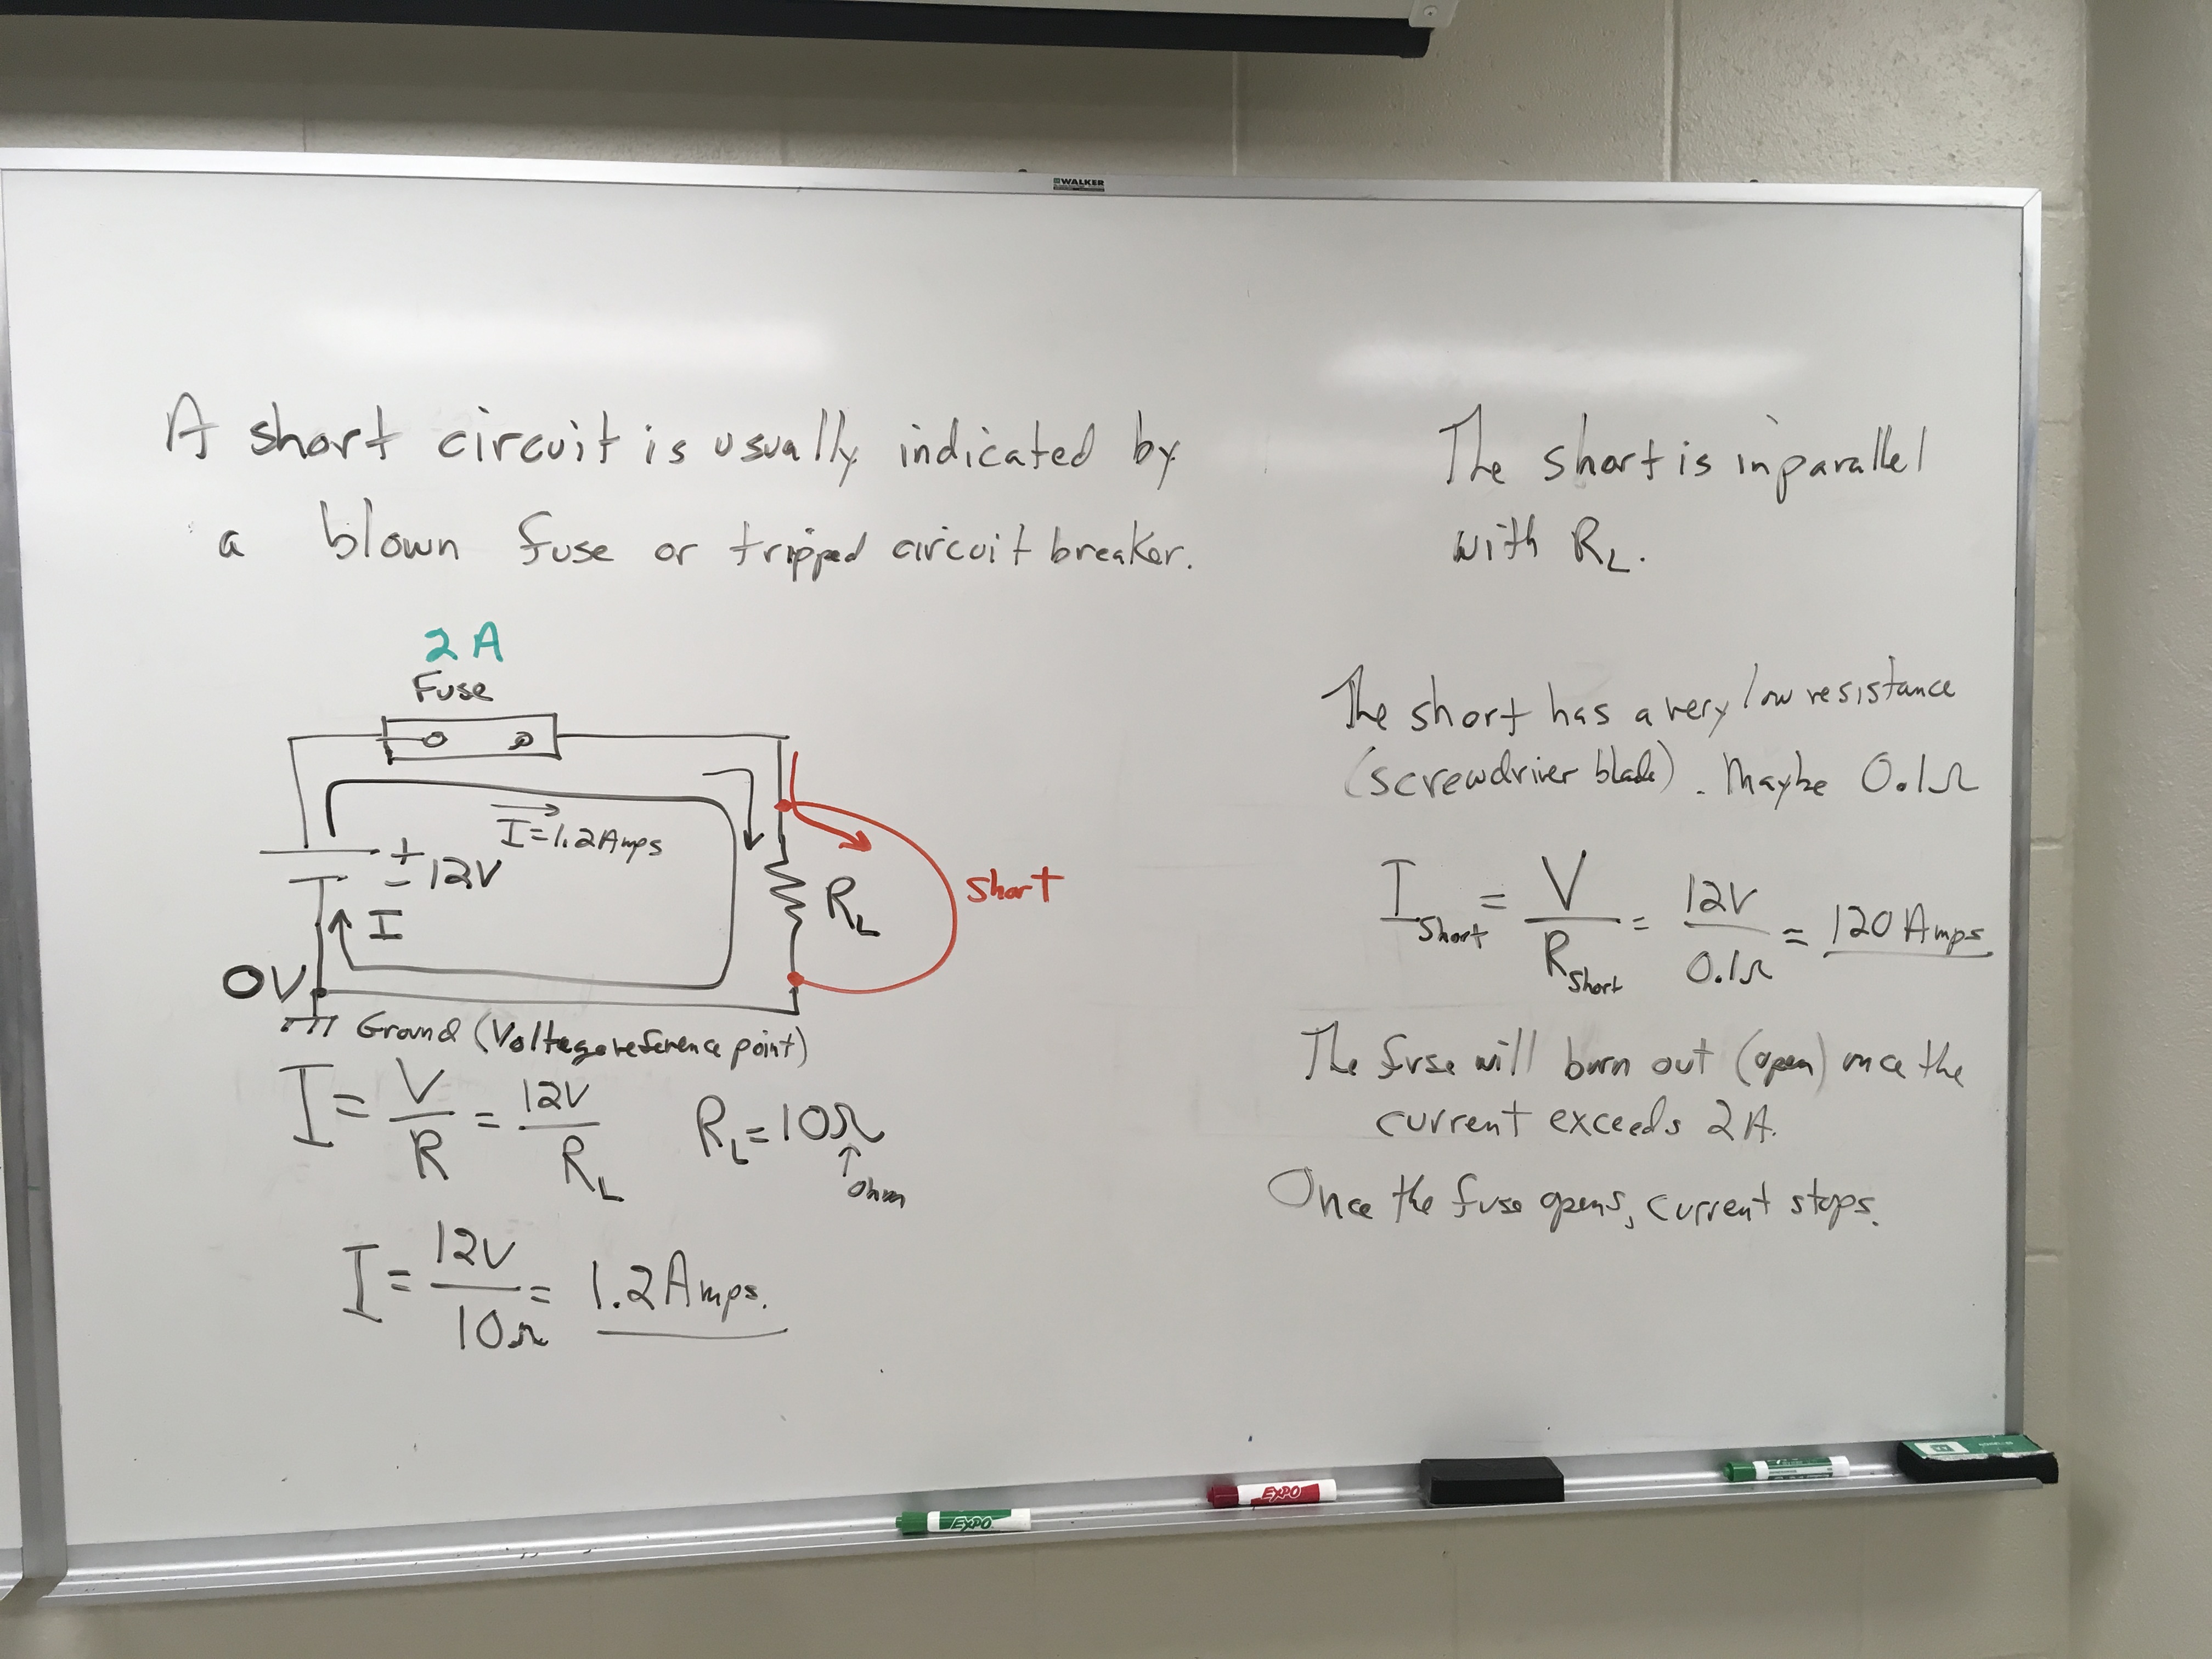 WALKER
A short circuit is usually indicated by
a blown fuse or tripped circuit breaker.
2 A
Fuse
I=1.2Amps
+
- 12V
I
RL
short
0V
Ground (Voltage reference point)
I = V/R = 12V/RL RL = 10Ω
↑
ohm
I = 12V/10Ω = 1.2 Amps.
The short is in parallel
with RL.
The short has a very low resistance
(screwdriver blade). Maybe 0.1Ω
IShort = V/RShort = 12V/0.1Ω = 120 Amps
The fuse will burn out (open) once the
current exceeds 2A.
Once the fuse opens, current stops.
EXPO
EXPO